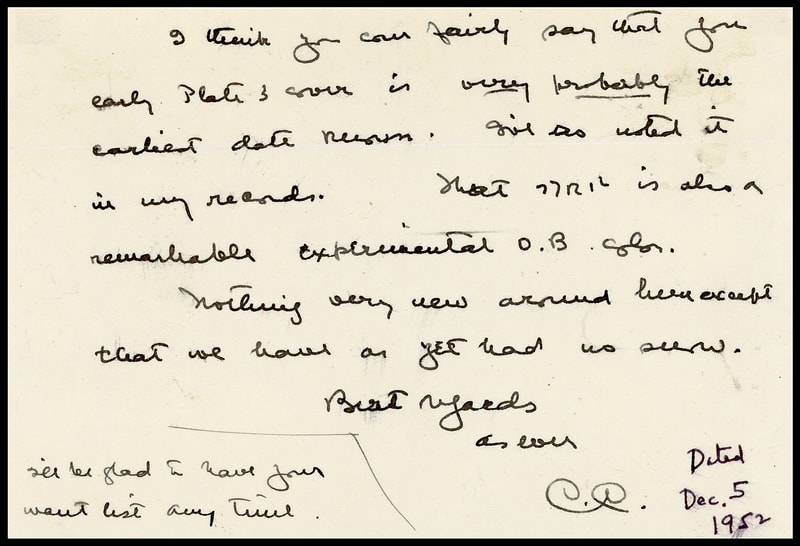 I think you can fairly say that your
early Plate 3 cover is very probably the
earliest date known. I've so noted it
in my records. That is also a
remarkable experimental O.B. color.
Nothing very new around here except
that we have as yet had no snow.
Best regards
as ever
I'll be glad to have your
want list any time.
Dated
Dec. 5
1952